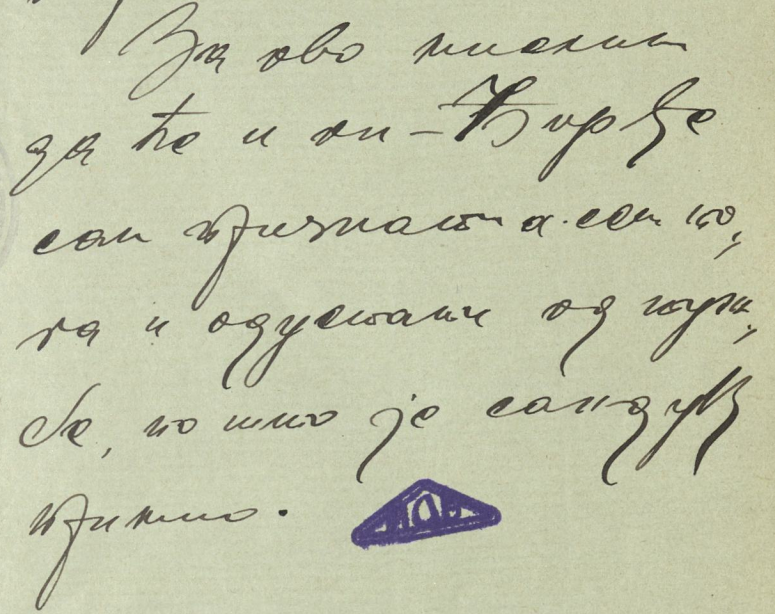 За ово мислим
да ће и он – Ђорђе
сам признати а сем то„
га и одустати од туж„
бе, пошто је сандук
примио.